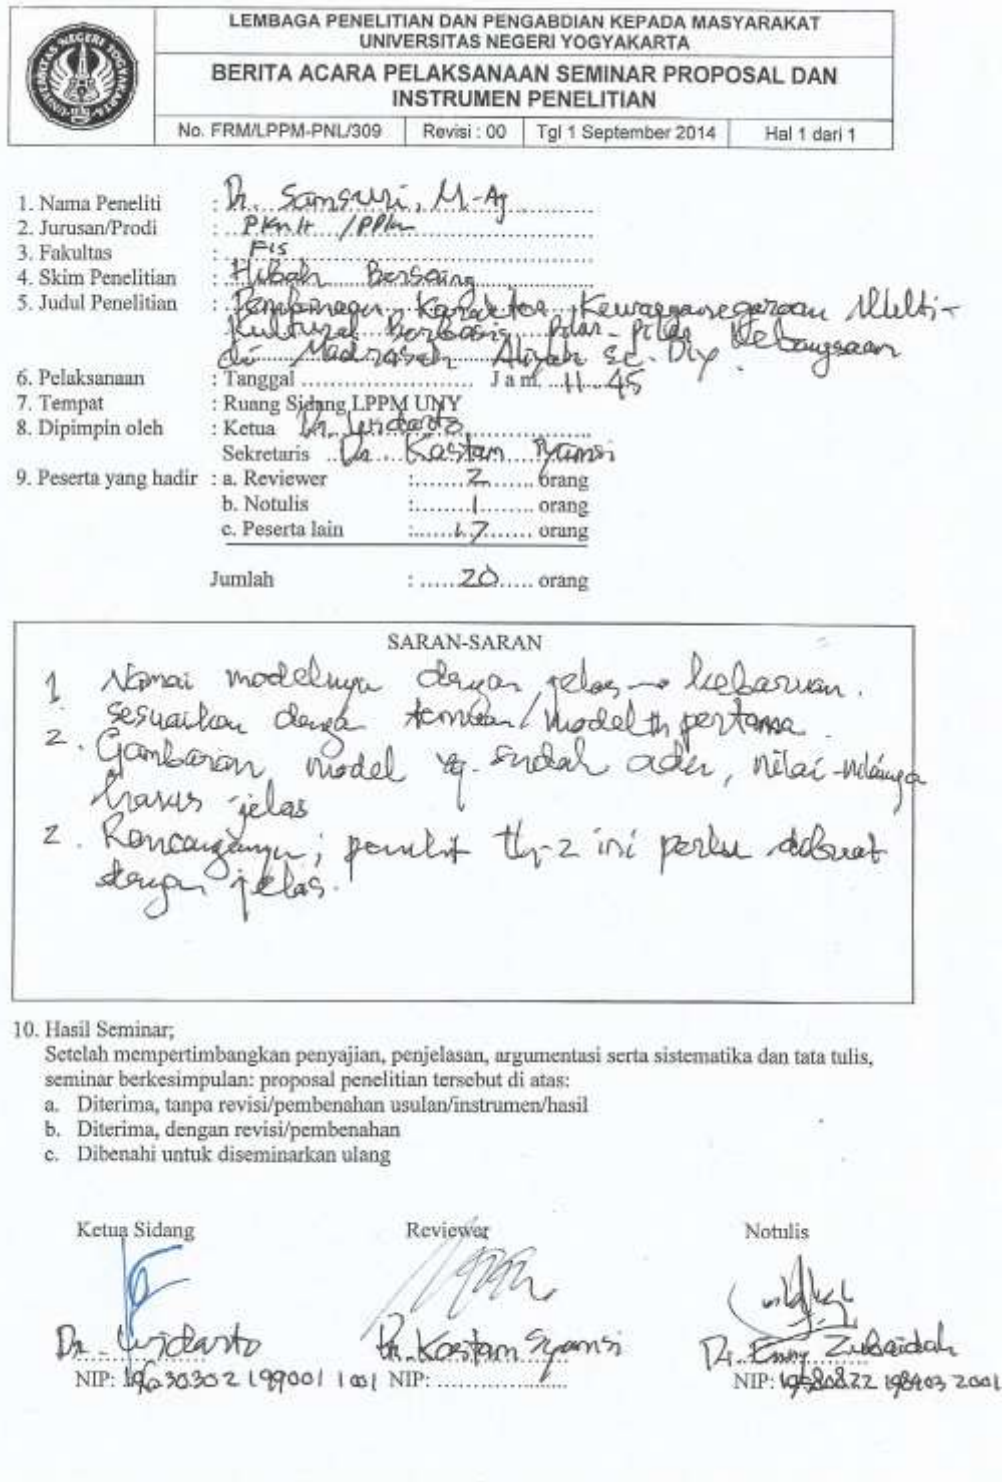 LEMBAGA PENELITIAN DAN PENGABDIAN KEPADA MASYARAKAT
UNIVERSITAS NEGERI YOGYAKARTA
BERITA ACARA PELAKSANAAN SEMINAR PROPOSAL DAN
INSTRUMEN PENELITIAN
No. FRM/LPPM-PNL/309 Revisi : 00 Tgl 1 September 2014 Hal 1 dari 1
UNIVERSITAS NEGERI YOGYAKARTA
1. Nama Peneliti : Dr. Samsuri, M.Ag
2. Jurusan/Prodi : PKnH /PPKn
3. Fakultas : FIS
4. Skim Penelitian : Hibah Bersaing
5. Judul Penelitian : Pembinaan Karakter Kewarganegaraan Multi-
kultural Berbasis Pilar-Pilar Kebangsaan
di Madrasah Aliyah se-DIY
6. Pelaksanaan : Tanggal ........................ Jam. 11.45
7. Tempat : Ruang Sidang LPPM UNY
8. Dipimpin oleh : Ketua Dr. Widarto
Sekretaris Dr. Kastam Syamsi
9. Peserta yang hadir : a. Reviewer : 2 orang
b. Notulis : 1 orang
c. Peserta lain : 17 orang
Jumlah : 20 orang
SARAN-SARAN
1 Namai modelnya dengan jelas → kebaruan.
sesuaikan dengan temuan/model th pertama.
2. Gambaran model yg. sudah ada, nilai-nilainya
harus jelas
2. Rancangannya; penelit th-2 ini perlu dibuat
dengan jelas.
10. Hasil Seminar;
Setelah mempertimbangkan penyajian, penjelasan, argumentasi serta sistematika dan tata tulis,
seminar berkesimpulan: proposal penelitian tersebut di atas:
a. Diterima, tanpa revisi/pembenahan usulan/instrumen/hasil
b. Diterima, dengan revisi/pembenahan
c. Dibenahi untuk diseminarkan ulang
Ketua Sidang Reviewer Notulis
Dr. Widarto Dr. Kastam Syamsi Dr. Enny Zubaidah
NIP: 19630302 199001 1 001 NIP: ........................ NIP: 19580822 198403 2001